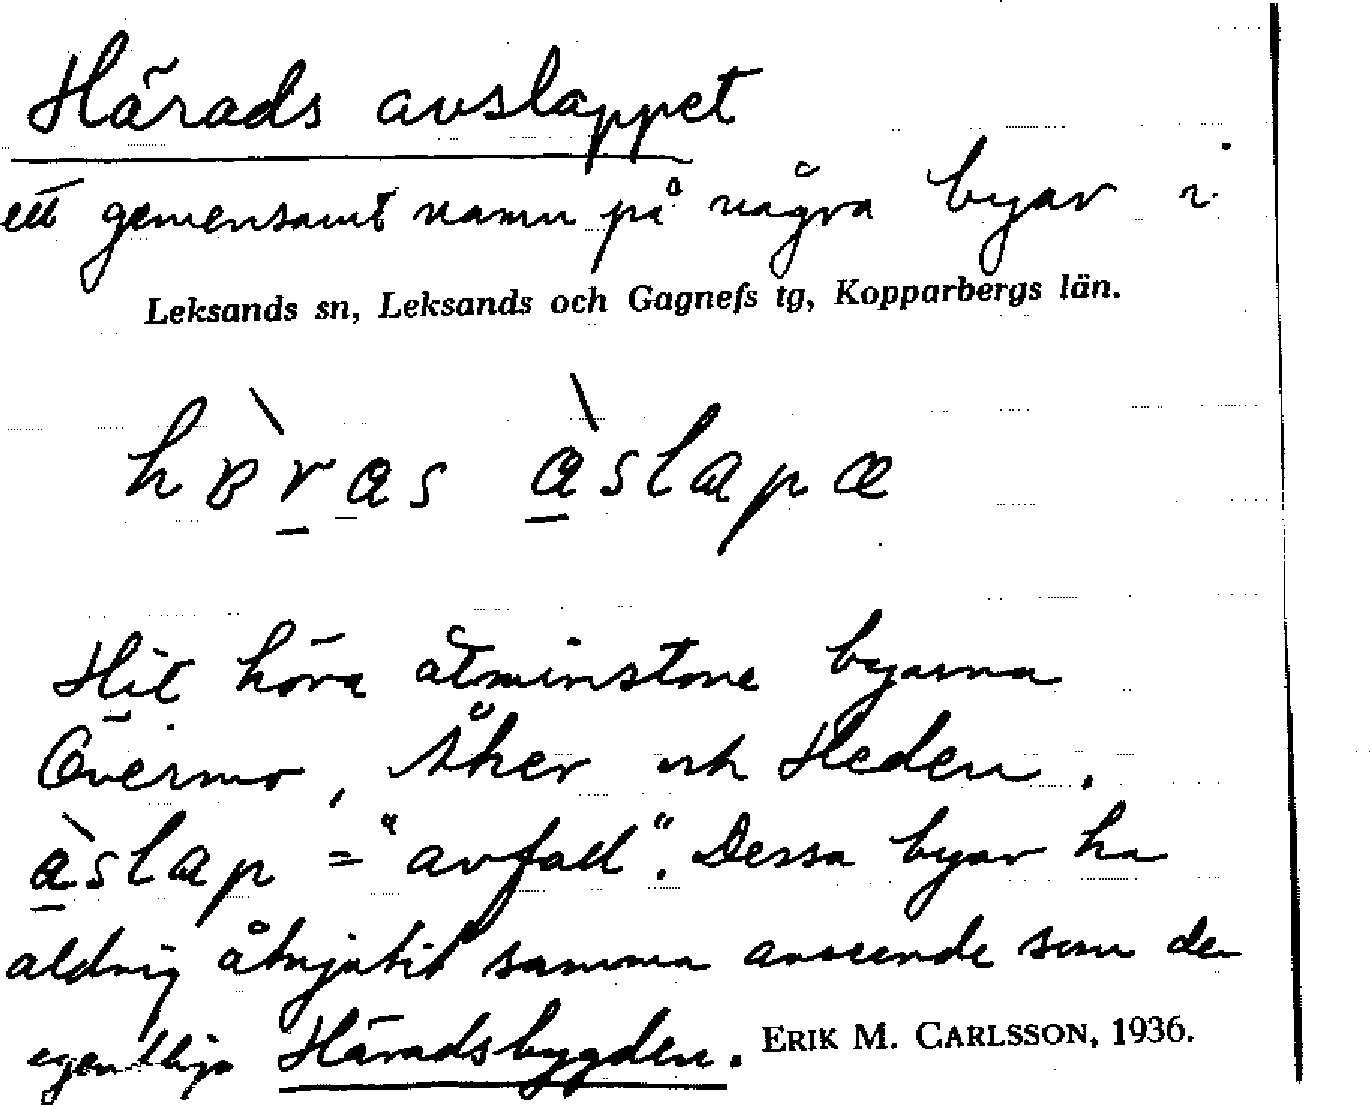 Härads avslappet
ett gemensamt namn på några byar i
Leksands sn, Leksands och Gagnefs tg, Kopparbergs län.
hɐ̀ras àslapæ
Hit höra åtminstone byarna
Övermo, Åker och Heden.
àslap = "avfall". Dessa byar ha
aldrig åtnjutit samma anseende som den
egentliga Häradsbygden. ERIK M. CARLSSON, 1936.